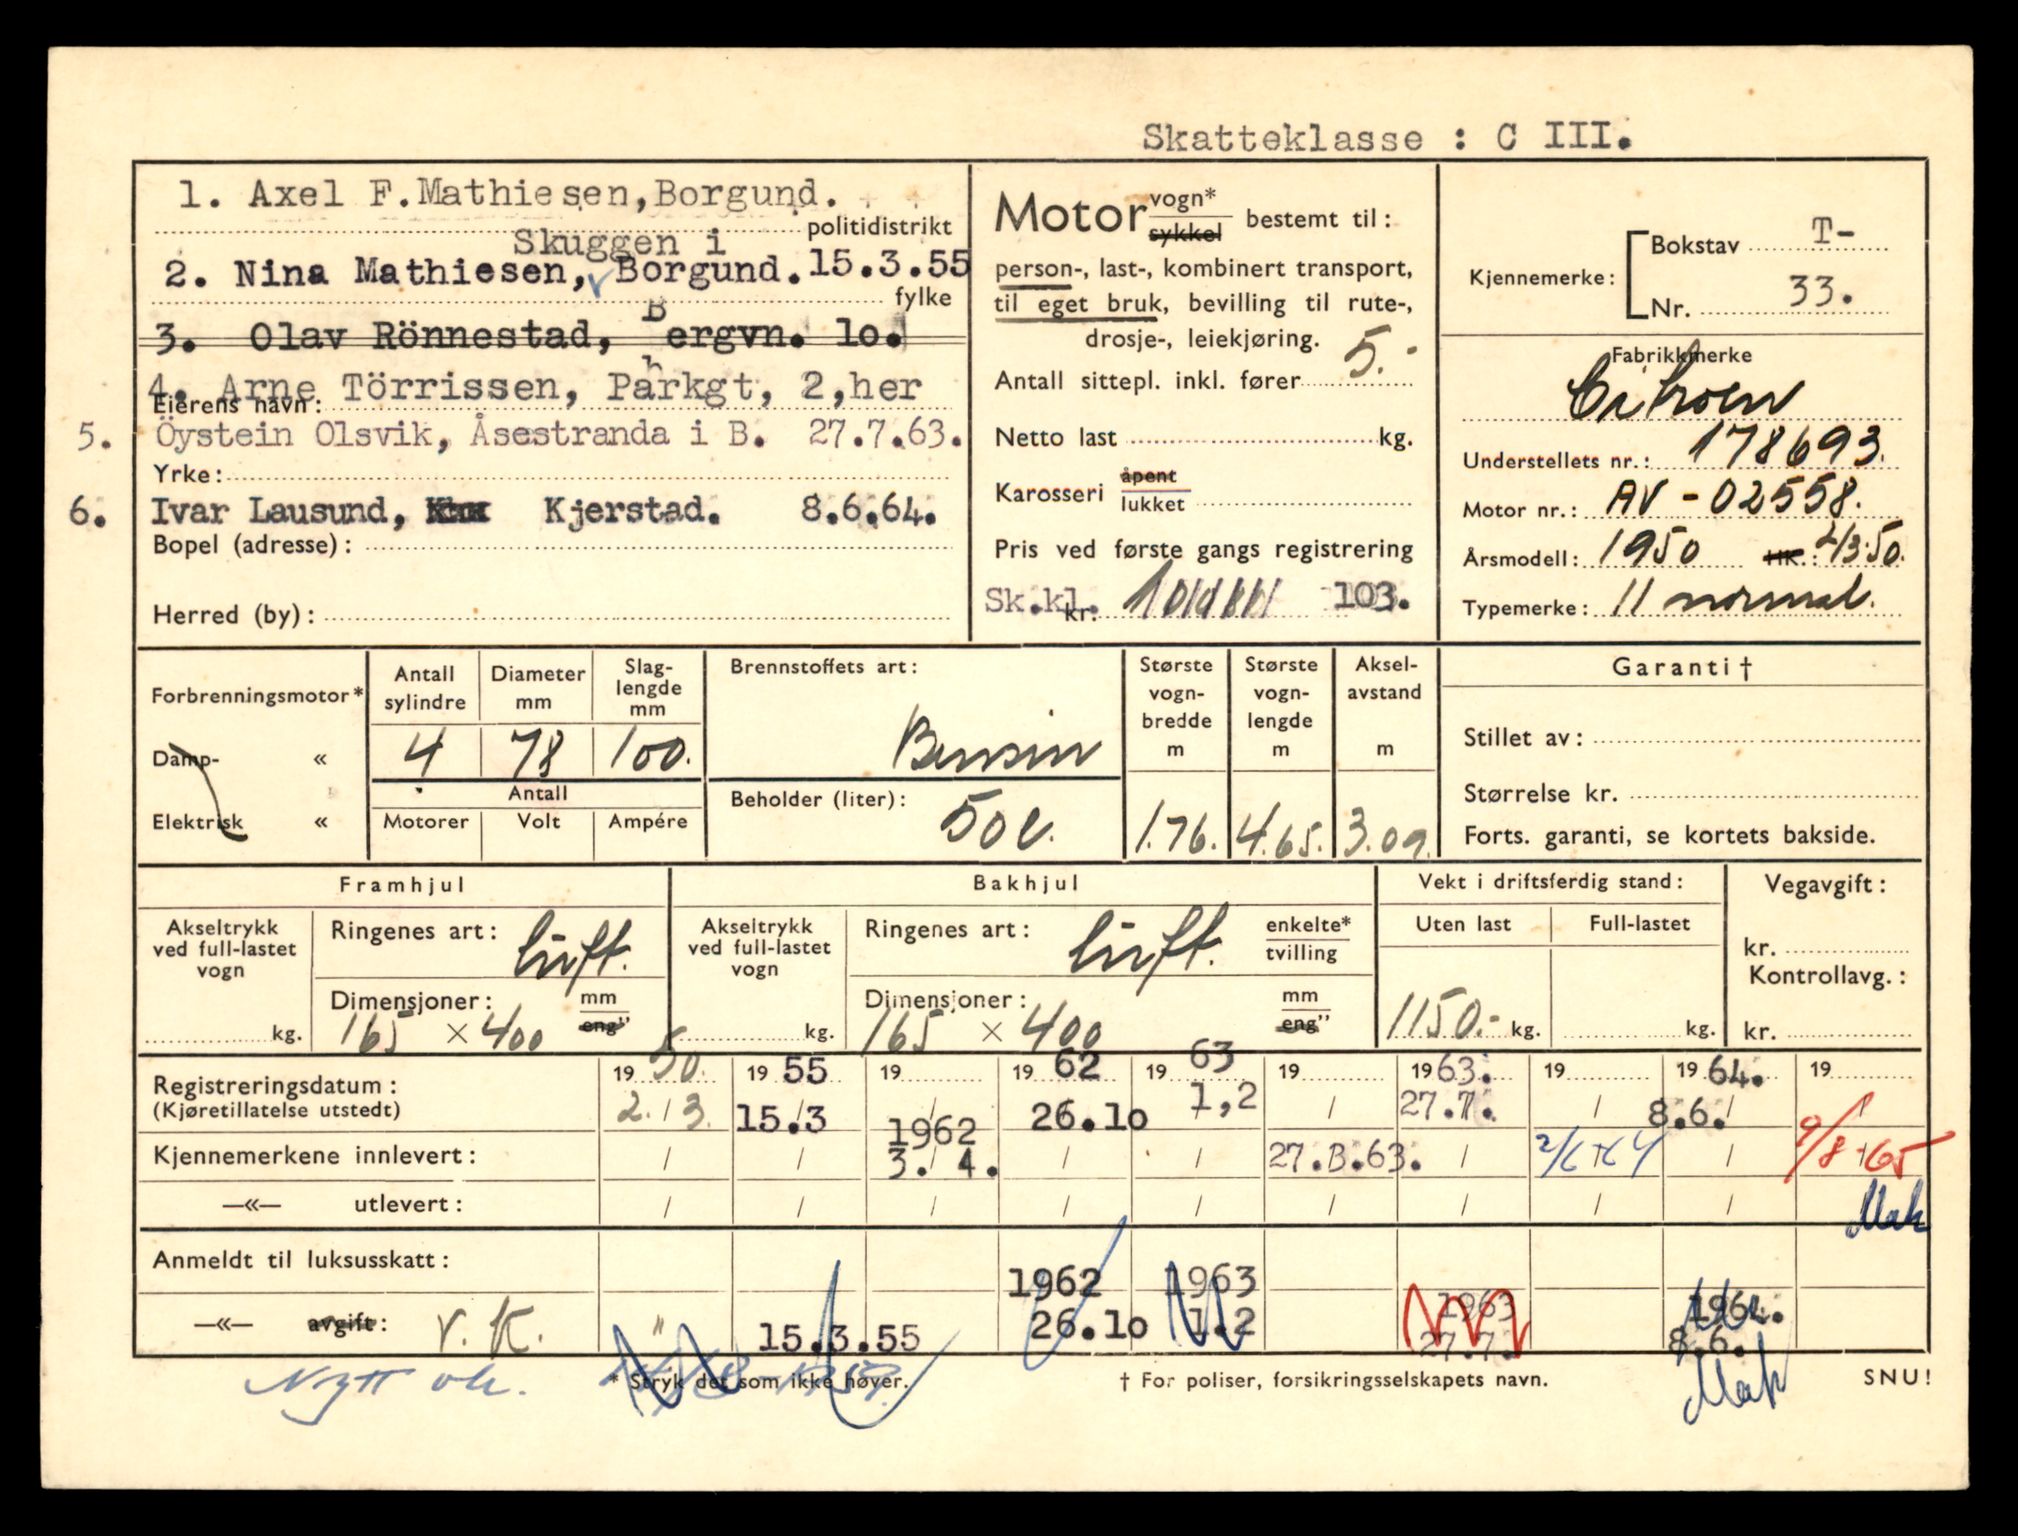 Skatteklasse : C III.
1. Axel F.Mathiesen,Borgund.
politidistrikt
Skuggen i
2. Nina Mathiesen, Borgund. 15.3.55
fylke
3. Olav Rönnestad, Bergvn. lo.
4. Arne Törrissen, Parkgt, 2,her
Eierens navn:
5. Öystein Olsvik, Åsestranda i B. 27.7.63.
Yrke:
6. Ivar Lausund, Kjerstad. 8.6.64.
Bopel (adresse):
Herred (by):
Motor vogn* sykkel bestemt til:
person-, last-, kombinert transport,
til eget bruk, bevilling til rute-,
drosje-, leiekjøring.
Antall sittepl. inkl. fører 5.-
Netto last kg.
Karosseri åpent lukket
Pris ved første gangs registrering
Sk.kl. kr. 103.
Kjennemerke:
Bokstav T-
Nr. 33.
Fabrikkmerke
Citroen
Understellets nr.: 178693.
Motor nr.: AV - 02558.
Årsmodell: 1950 HK.: 2/3.50.
Typemerke: 11 normal.
Forbrenningsmotor*
Damp- «
Elektrisk «
Antall sylindre 4
Diameter mm 78
Slag-lengde mm 100.
Antall
Motorer Volt Ampére
Brennstoffets art:
Bensin
Beholder (liter): 50 l.
Største vogn-bredde m 1.76.
Største vogn-lengde m 4.65.
Aksel-avstand m 3.09.
Garanti †
Stillet av:
Størrelse kr.
Forts. garanti, se kortets bakside.
Framhjul
Akseltrykk ved full-lastet vogn kg.
Ringenes art: luft.
Dimensjoner: mm eng"
165 × 400
Bakhjul
Akseltrykk ved full-lastet vogn kg.
Ringenes art: luft. enkelte* tvilling
Dimensjoner: mm eng"
165 × 400
Vekt i driftsferdig stand:
Uten last Full-lastet
1150.- kg. kg.
Vegavgift:
kr.
Kontrollavg.:
kr.
Registreringsdatum: 19 50. 19 55 19 19 62 19 63 19 19 63. 19 19 64. 19
(Kjøretillatelse utstedt) 2. / 3. 15.3 / 26.lo 1,2 / 27.7. / 8.6. /
Kjennemerkene innlevert: / / 1962 3. 4. / / 27.3.63. / 2/6-64 / 9/8-65
—«— utlevert: / / / / / / / / / Mak
Anmeldt til luksusskatt: 1962 1963 1963 1964.
—«— avgift: v. K. " 15.3.55 26.lo 1.2 27.7. 8.6.
Nytt
* Stryk det som ikke høver.
† For poliser, forsikringsselskapets navn.
Mak
SNU!